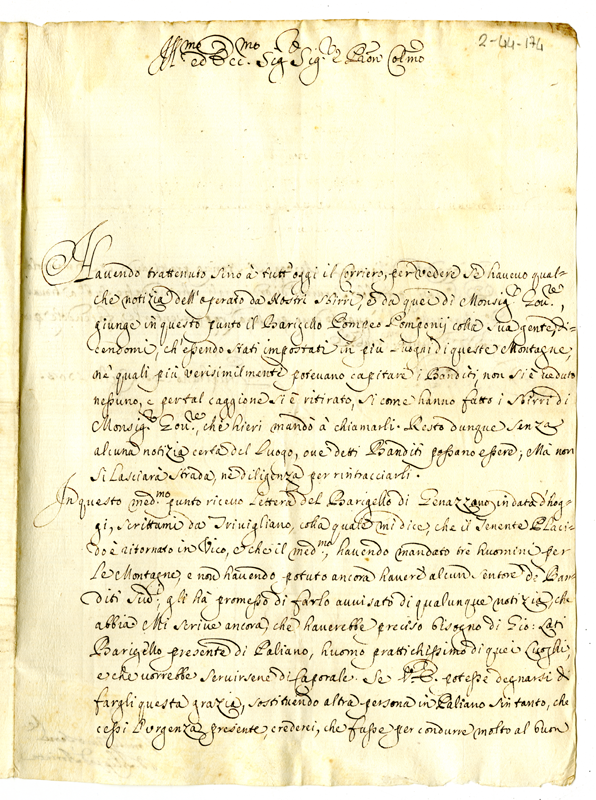 2-44-174
Ill.mo ed Ecc.mo Sig.r Sig.r e Pron Colmo
Havendo trattenuto sino à tutt'oggi il Corriero, per vedere se havevo qual=
che notizia dell'operato da Nostri Sbirri, ò da quei di Monsig.r Gov.re,
giunge in questo punto il Barigello Pompeo Pomponij colla sua gente, di=
cendomi, ch'essendo stati impostati in più luoghi di queste Montagne,
nè quali più verisimilmente potevano capitare i Banditi, non si è veduto
nessuno, e per tal caggione si è ritirato, si come hanno fatto i Sbirri di
Monsig.r Gov.re, che hieri mandò à chiamarli. Resto dunque senza
alcuna notizia certa del luogo, ove detti Banditi possano essere; Mà non
si lasciarà strada, nè diligenza per rintracciarli.
In questo med.mo punto ricevo lettera del Barigello di Genazzano in data d'hog=
gi, scrittami da Trivigliano, colla quale mi dice, che il Tenente Placi=
do è ritornato in Vico, e che il med.mo, havendo mandato trè huomini per
le Montagne, e non havendo potuto ancora havere alcun sentore de Ban=
diti sud.i, gli hà promesso di farlo avvisato di qualunque notizia, che
abbia. Mi scrive ancora, che haverebbe preciso bisogno di Gio: Lati
Barigello presente di Paliano, huomo prattichissimo di quei luoghi
e che vorrebbe servirsene di Caporale. Se V.E. potesse degnarsi di
fargli questa grazia, sostituendo altra persona in Paliano sin tanto, che
cessi l'urgenza presente, crederei, che fusse per condurre molto al buon